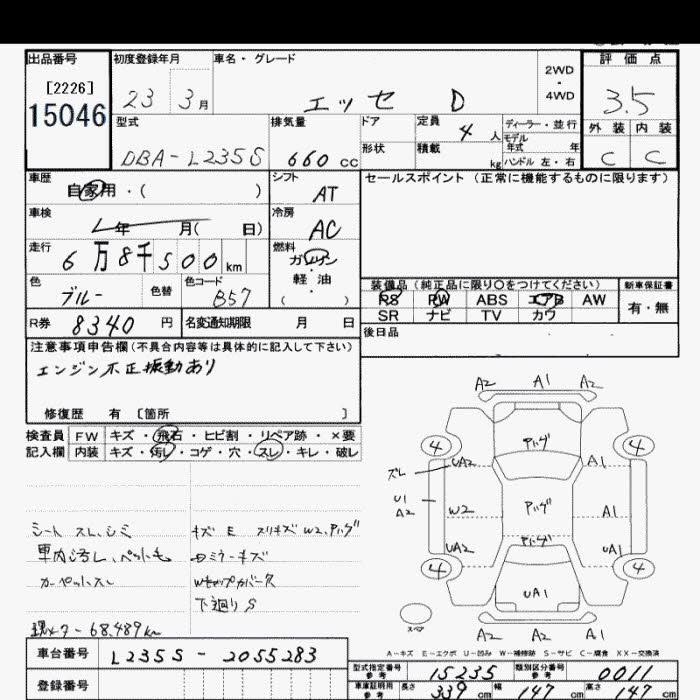 出品番号 初度登録年月 車名・グレード 評価点
[2226]
15046
23 3月 エッセ D 2WD・4WD 3.5
型式 排気量 ドア 定員 4人 ディーラー・並行 外装 内装
モデル年式 年
DBA-L235S 660cc 形状 積載 kg ハンドル 左・右 C C
車歴 自家用・( ) シフト AT セールスポイント (正常に機能するものに限ります)
車検 年 月( 日) 冷房 AC
走行 6万8千500km 燃料 ガソリン・軽油 ( )
色 ブルー 色替 色コード B57 装備品 (純正品に限り○をつけてください) 新車保証書
PS PW ABS エアB AW 有・無
SR ナビ TV カワ
R券 8340円 名変通知期限 月 日 後日品
注意事項申告欄(不具合内容等は具体的に記入して下さい)
エンジン不正振動あり
修復歴 有 [箇所 ]
検査員 FW キズ・飛石・ヒビ割・リペア跡・×要
記入欄 内装 キズ・汚レ・コゲ・穴・スレ・キレ・破レ
A2 A1 A2
4 アハゲ 4
ズレ UA2 A1
U1
A2 W2 アハゲ A1
アハゲ
UA2 UA1
4 4
UA1
スペア A2 A2 A1
シート スレ、シミ キズ E スリキズ W2、アハゲ
車内汚レ、ペット毛 ミラーキズ
カーペットスレ カバー欠
下廻りS
現メーター68.489km
A-キズ E-エクボ U-凹み W-補修跡 S-サビ C-腐食 XX-交換済
車台番号 L235S-2055283
型式指定番号 参考 15235 類別区分番号 参考 0011
登録番号 車庫証明用 参考 長さ 339cm 幅 147cm 高さ 147cm